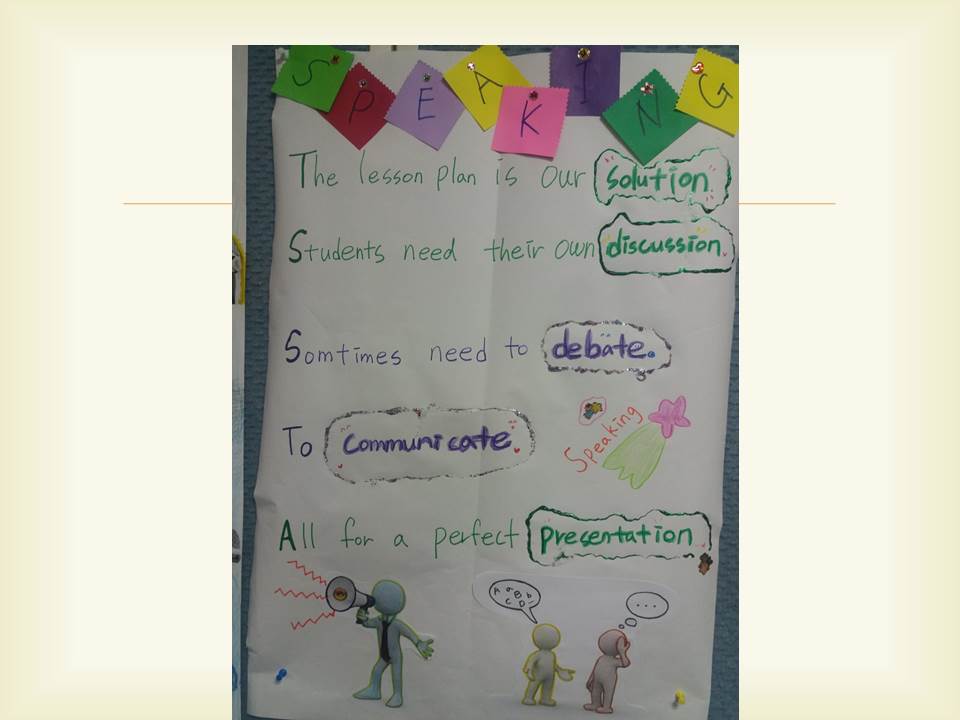 SPEAKING
The lesson plan is our solution.
Students need their own discussion.
Somtimes need to debate.
Speaking
To communicate
All for a perfect presentation